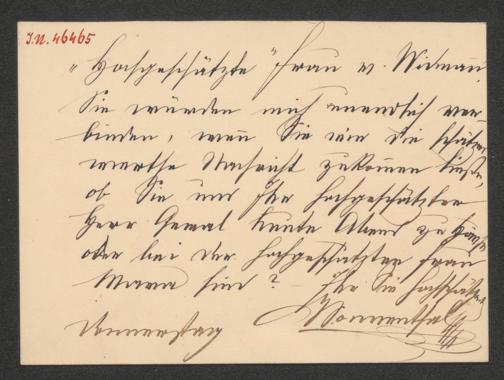 I.N. 46465
"Hochgeschätzte" Frau v. Widmann
Sie würden mich unendlich ver-
binden, wenn Sie mir die schätzens-
werthe Nachricht zukommen ließen,
ob Sie und Ihr hochgeschätzter
Herr Gemal heute Abend zu Hause
oder bei der hochgeschätzten Frau
Mama sind? – Ihr Sie hochschätzender
Sonnenthal
Donnerstag